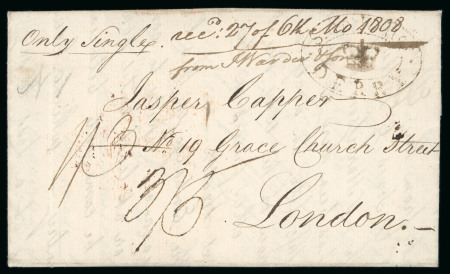 Only Single. recd: 27 of 6th Mo 1808
from J Warder & Sons
DERRY
Jasper Capper
No 19 Grace Church Street
London.